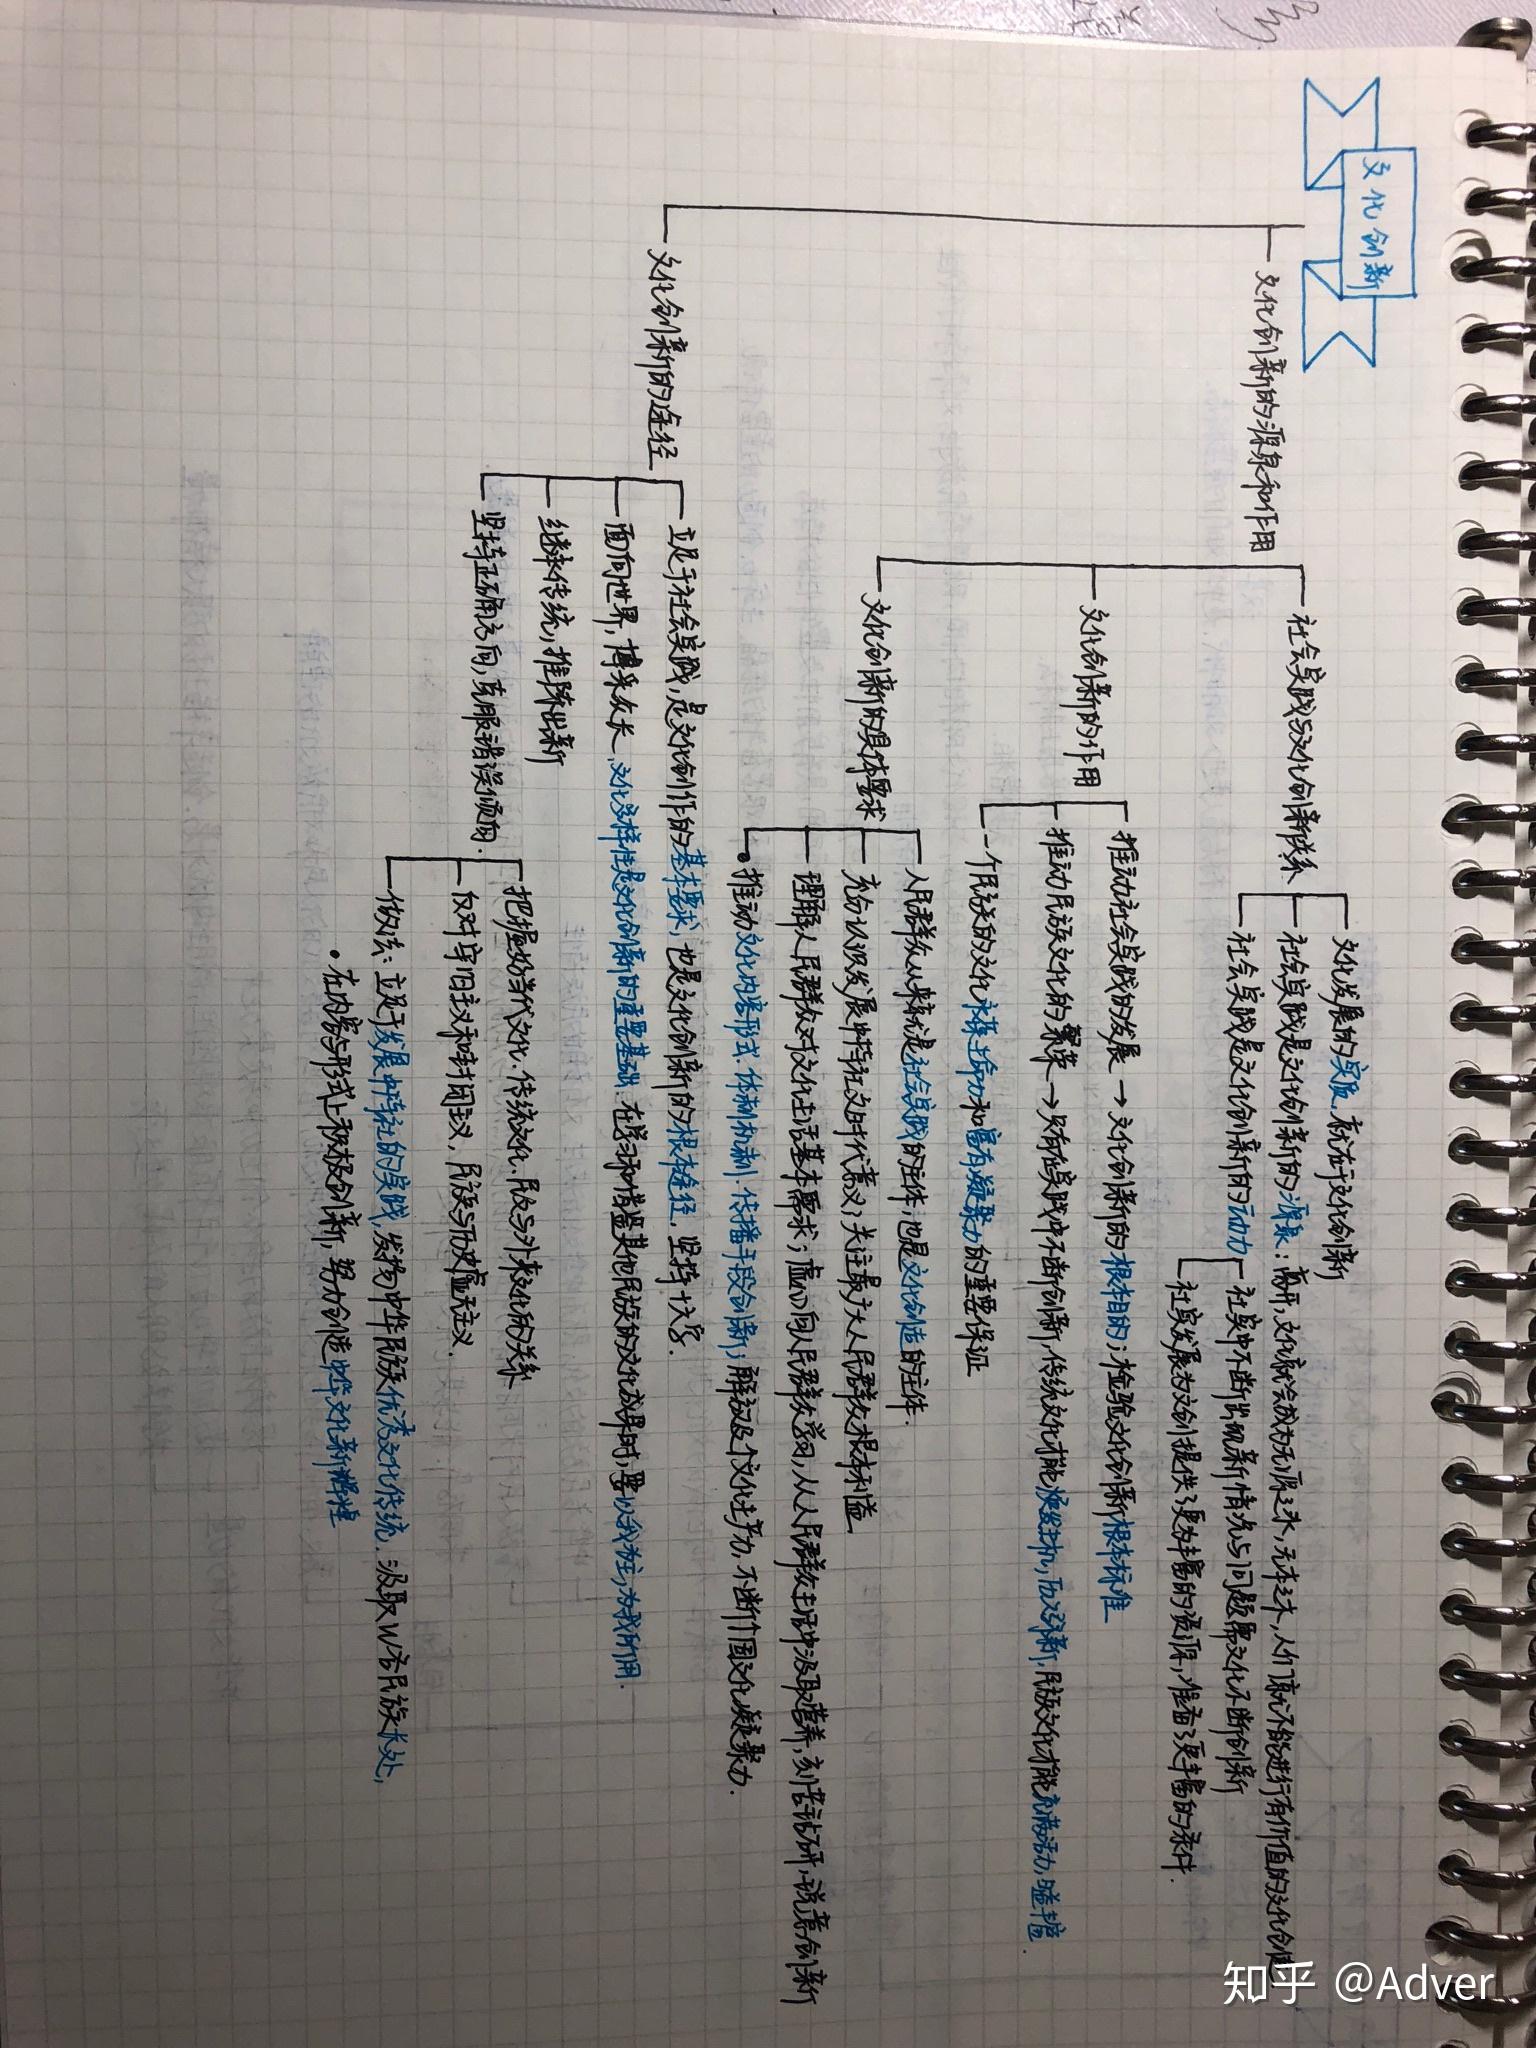 文化创新
文化创新的源泉和作用
社会实践与文化创新关系
文化发展的实质，就在于文化创新
社会实践是文化创新的源泉：离开，文化就会成为无源之水，无本之木，人们就不能进行有价值的文化创造
社会实践是文化创新的动力
社实中不断出现新情况与问题需文化不断创新
社实发展为文创提供了更为丰富的资源，准备了更丰富的条件.
文化创新的作用
推动社会实践的发展→文化创新的根本目的；检验文化创新根本标准
推动民族文化的繁荣→只有在实践中不断创新，传统文化才能焕发生机，历久弥新，民族文化才能充满活力，日益丰富.
一个民族的文化永葆生命力和富有凝聚力的重要保证
文化创新的具体要求
人民群众从来就是社会实践的主体，也是文化创造的主体.
充分认识发展中特社文时代意义；关注最广大人民群众根本利益
理解人民群众对文化生活基本需求；虚心向人民群众学习，从人民群众生活中汲取营养，刻苦钻研，锐意创新
推动文化内容形式.体制机制.传播手段创新；解放及个文化生产力，不断个国文化凝聚力.
文化创新的途径
立足于社会实践，是文化创作的基本要求，也是文化创新的根本途径，坚持
面向世界，博采众长，文化多样性是文化创新的重要基础.在学习和借鉴其他民族的文化成果时，要以我为主，为我所用.
继承传统，推陈出新
坚持正确方向，克服错误倾向.
把握好当代文化.传统文化、民族与外来文化的关系
反对守旧主义和封闭主义，民族与历史虚无主义.
做法：立足于发展中特社的实践，发扬中华民族优秀文化传统.汲取W各民族长处，
•在内容与形式上积极创新，努力创造中华文化新辉煌
知乎 @Adver